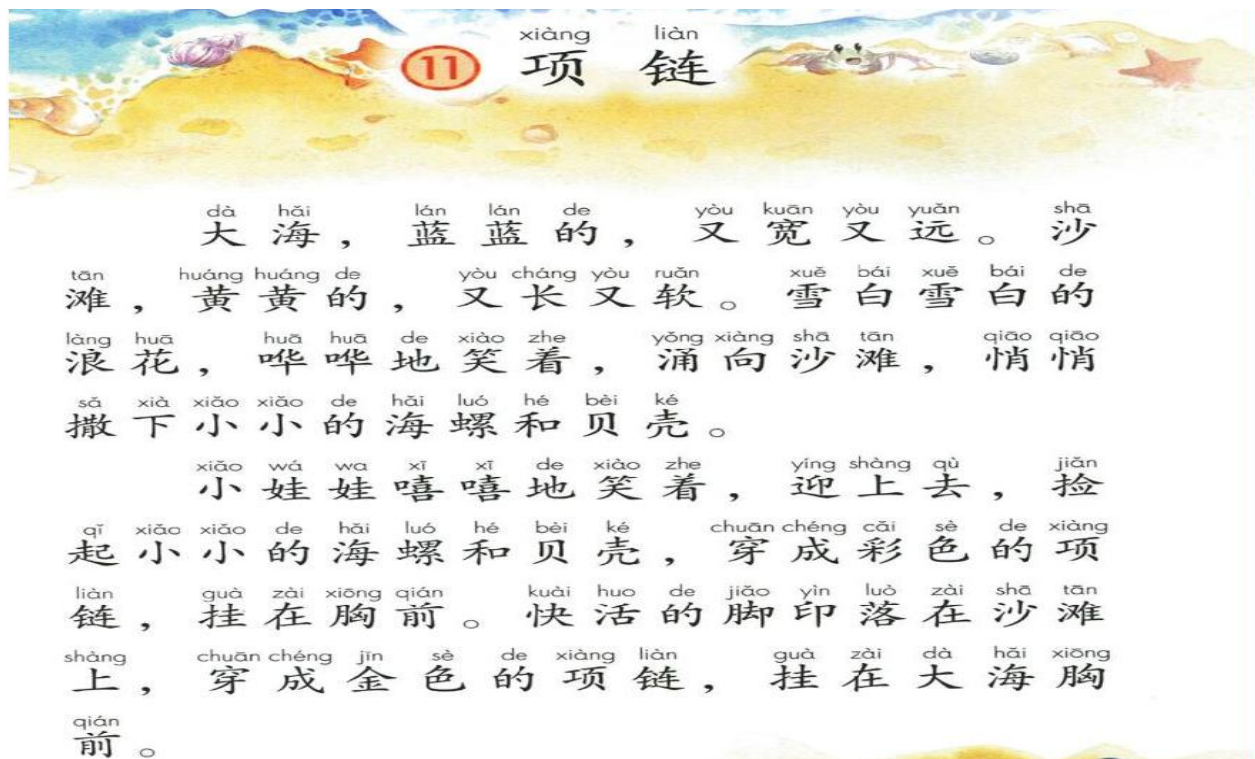 xiàng liàn
11 项 链
dà hǎi lán lán de yòu kuān yòu yuǎn shā
大海，蓝蓝的，又宽又远。沙
tān huáng huáng de yòu cháng yòu ruǎn xuě bái xuě bái de
滩，黄黄的，又长又软。雪白雪白的
làng huā huā huā de xiào zhe yǒng xiàng shā tān qiāo qiāo
浪花，哗哗地笑着，涌向沙滩，悄悄
sǎ xià xiǎo xiǎo de hǎi luó hé bèi ké
撒下小小的海螺和贝壳。
xiǎo wá wa xī xī de xiào zhe yíng shàng qù jiǎn
小娃娃嘻嘻地笑着，迎上去，捡
qǐ xiǎo xiǎo de hǎi luó hé bèi ké chuān chéng cǎi sè de xiàng
起小小的海螺和贝壳，穿成彩色的项
liàn guà zài xiōng qián kuài huo de jiǎo yìn luò zài shā tān
链，挂在胸前。快活的脚印落在沙滩
shàng chuān chéng jīn sè de xiàng liàn guà zài dà hǎi xiōng
上，穿成金色的项链，挂在大海胸
qián
前。